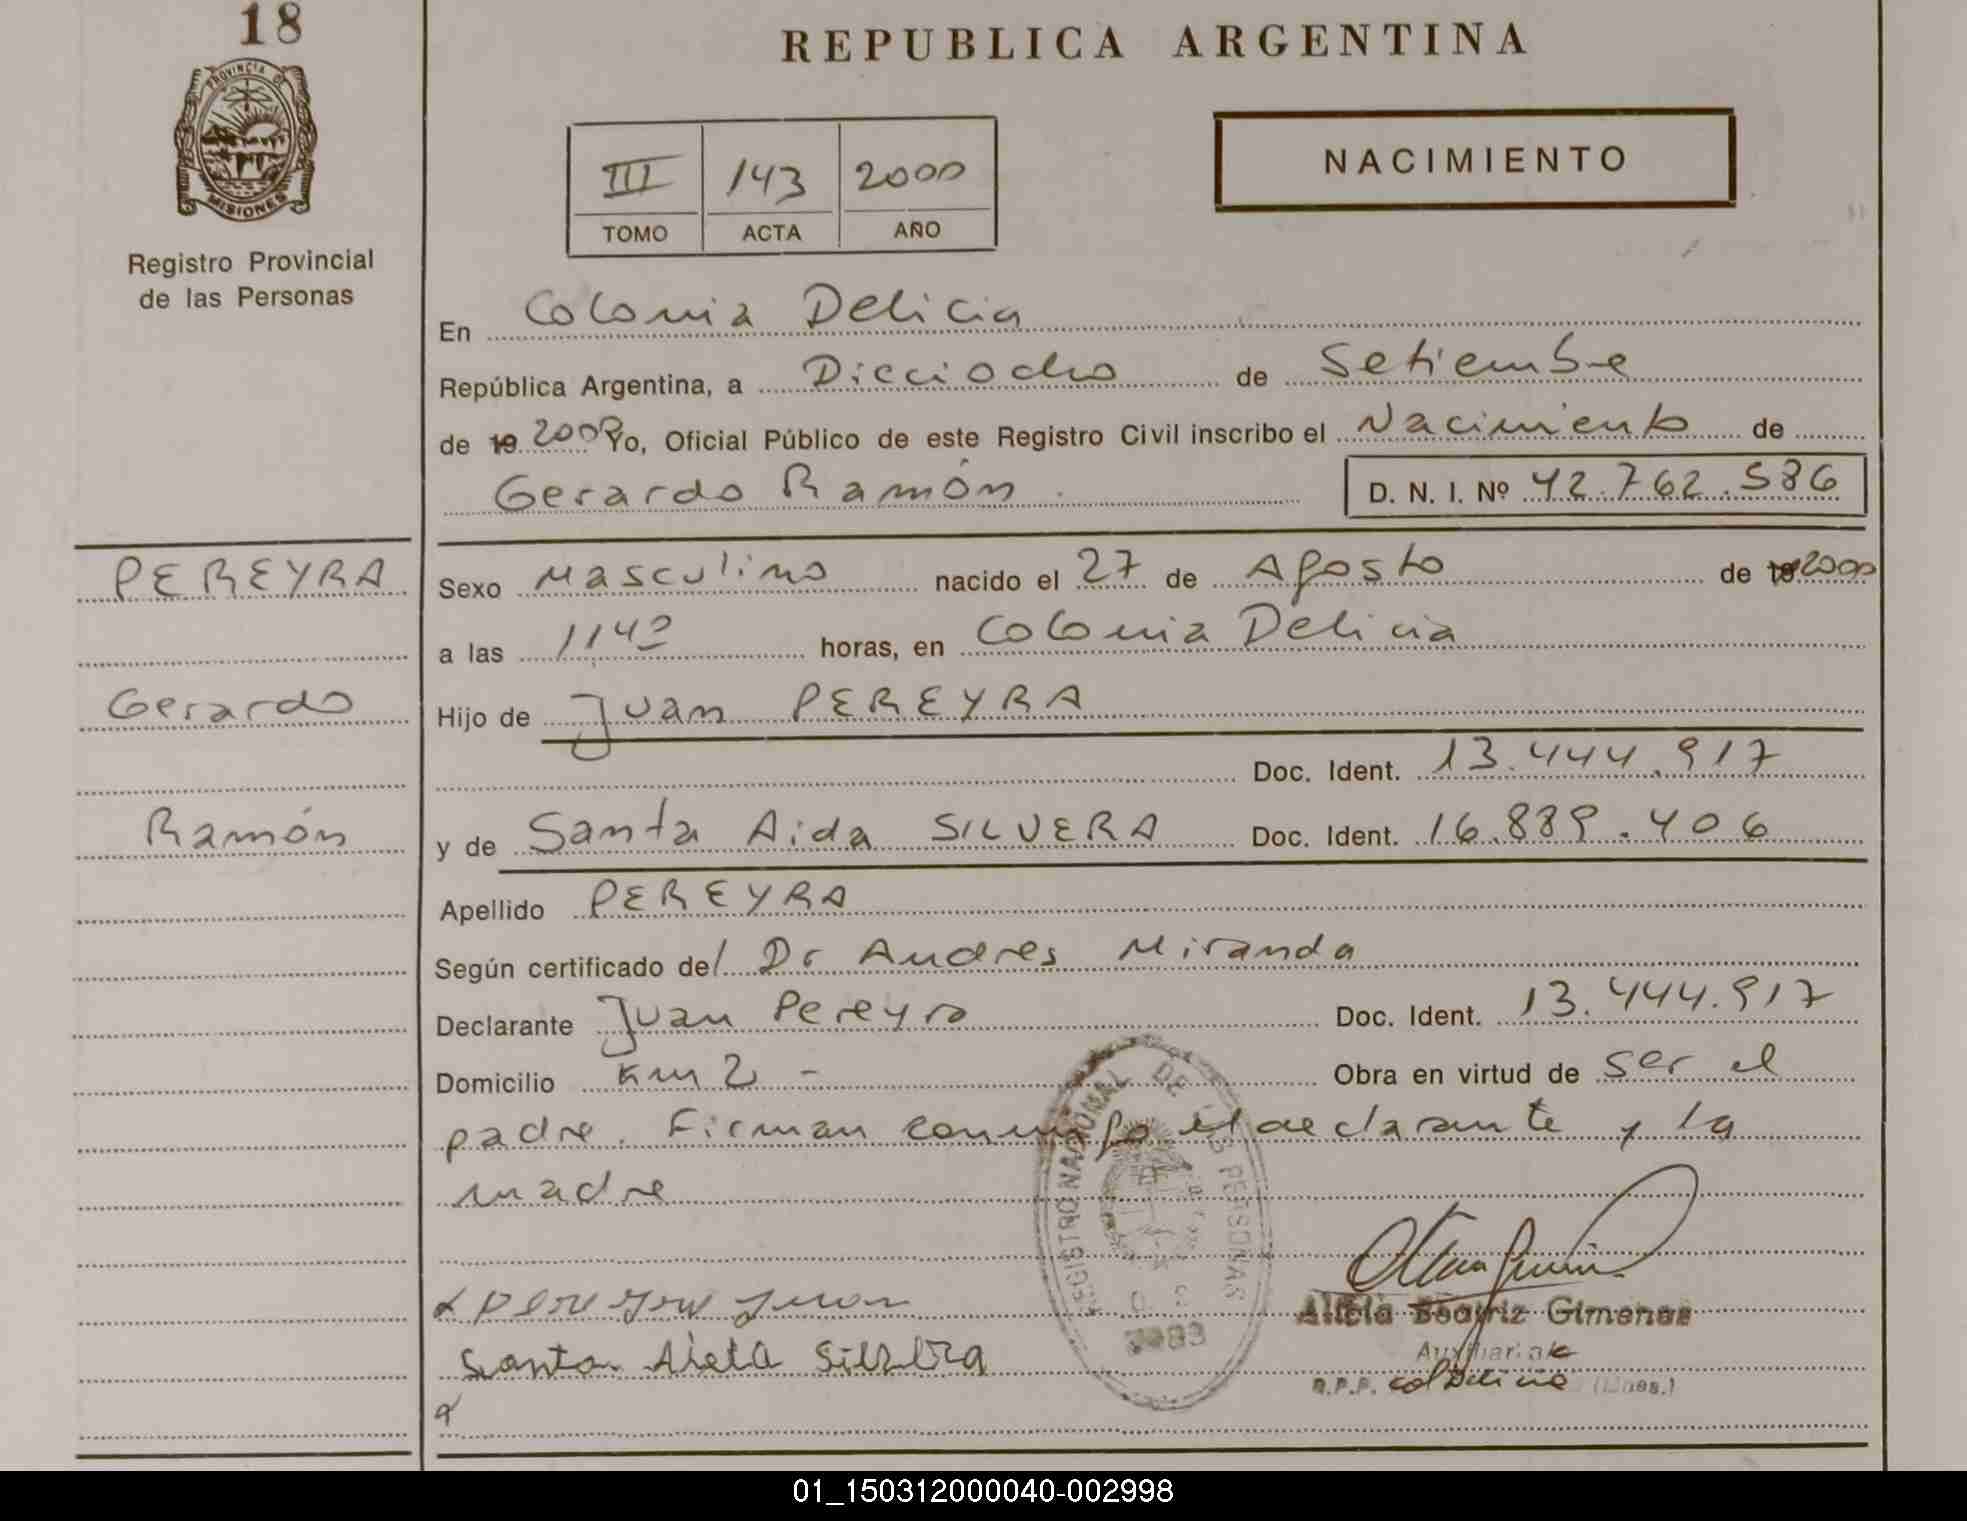 18
PROVINCIA DE
MISIONES
Registro Provincial
de las Personas
REPUBLICA ARGENTINA
III 143 2000
TOMO ACTA AÑO
NACIMIENTO
En Colonia Delicia
República Argentina, a Dieciocho de Setiembre
de 19 2000 Yo, Oficial Público de este Registro Civil inscribo el Nacimiento de
Gerardo Ramón. D. N. I. Nº 42.762.586
PEREYRA
Gerardo
Ramón
Sexo Masculino nacido el 27 de Agosto de 19 2000
a las 1140 horas, en Colonia Delicia
Hijo de Juan PEREYRA
Doc. Ident. 13.444.917
y de Santa Aida SILVERA Doc. Ident. 16.889.406
Apellido PEREYRA
Según certificado del Dr Andres Miranda
Declarante Juan Pereyra Doc. Ident. 13.444.917
Domicilio Km 2 - Obra en virtud de ser el
padre. Firman conmigo el declarante y la
madre
REGISTRO NACIONAL DE LAS PERSONAS
pereyra Juan
Santa Aieta
Alicia Beatriz Gimenez
Auxiliar
R.P.P. Col Delicia (Mnes.)
01_150312000040-002998